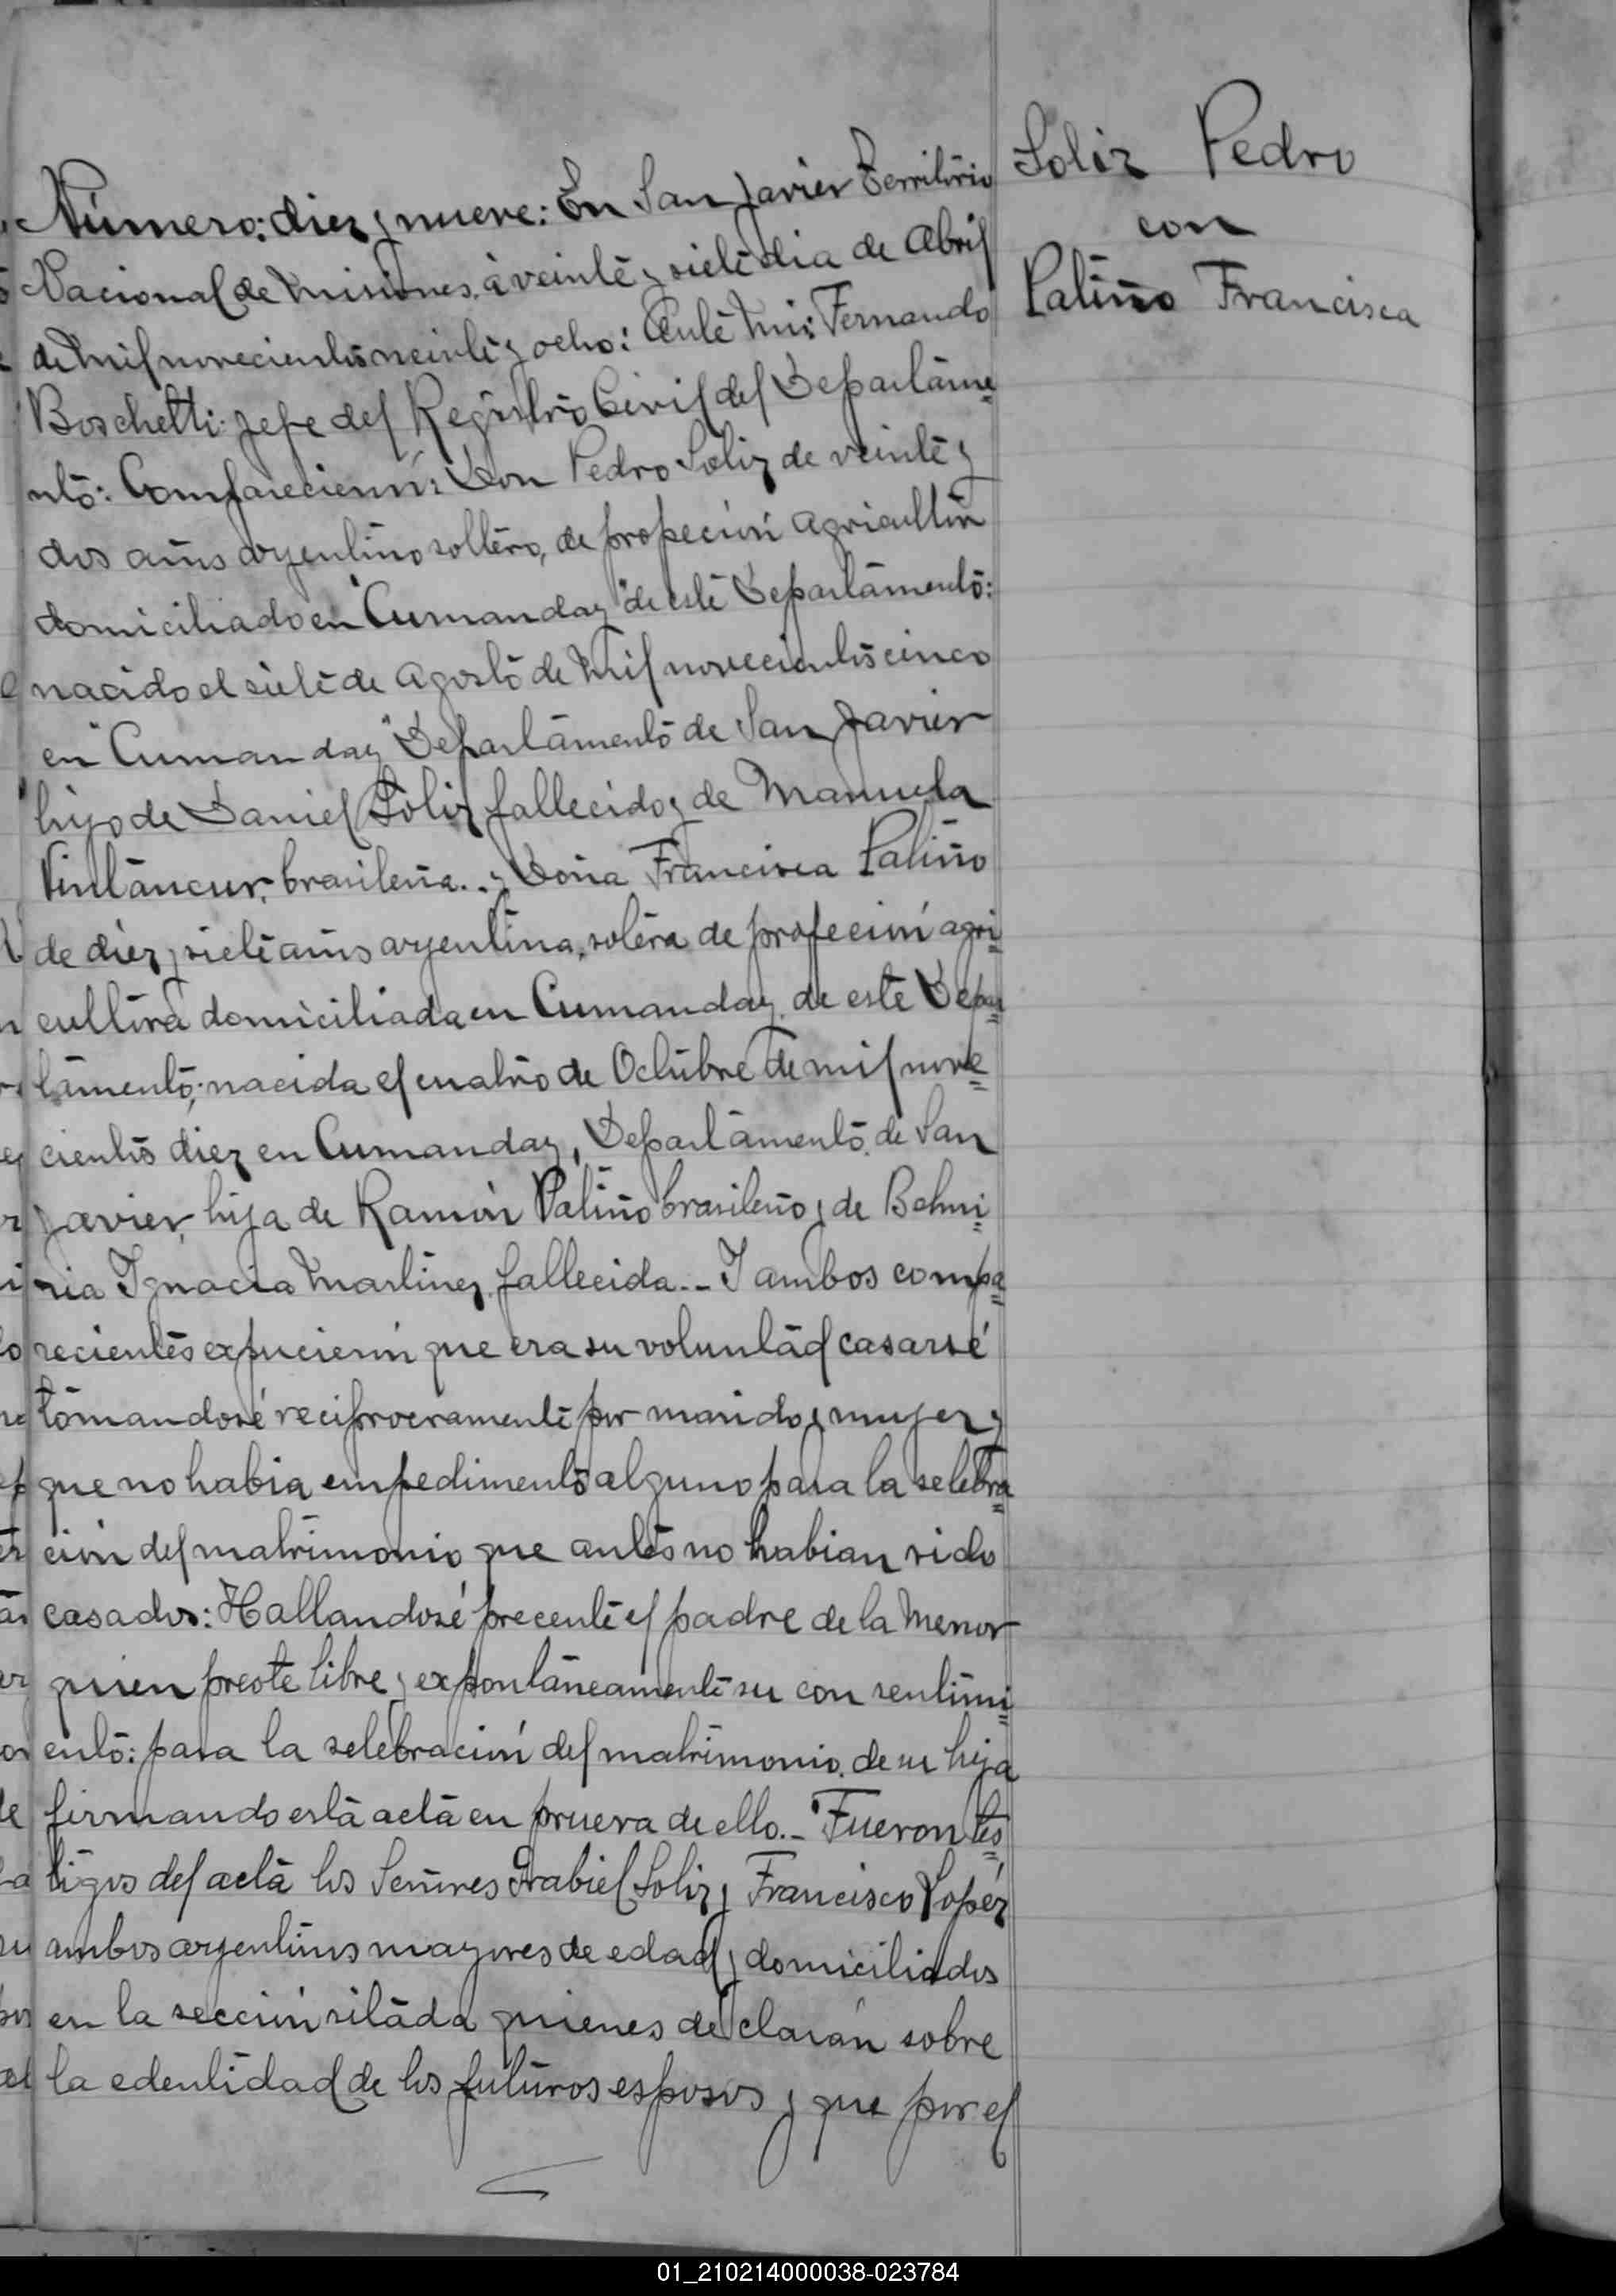 Soliz Pedro
con
Patiño Francisca
Número: diez y nueve: En San Javier Territorio
Nacional de Misiones, á veinte y siete dia de Abril
de Mil novecientos veinte y ocho: Ante Mi: Fernando
Boschetti: Jefe del Registro Civil del Departame
nto: Comparecierón: Don Pedro Soliz de veinte y
dos años argentino soltero, de profeción agricultor
domiciliado en "Cumanday" de este Departamento:
nacido el siete de Agosto de Mil novecientos cinco
en "Cumanday" Departamento de San Javier
hijo de Daniel Soliz fallecido y de Manuela
brasileña.. y Doña Francisca Patiño
de diez y siete años argentina, soltera de profeción agri
cultora domiciliada en Cumanday, de este Depar
tamento; nacida el cuatro de Octubre de mil nove
cientos diez en Cumanday, Departamento de San
Javier, hija de Ramón Patiño brasileño y de Belmi
ria Ignacia Martinez fallecida.- I ambos compa
recientes expucierón que era su voluntad casarsé
tomandosé reciprocramente por marido y mujer y
que no habia empedimento alguno para la selebra
ción del matrimonio que antes no habian sido
casados: Hallandosé precente el padre de la Menor
quien preste libre y expontaneamente su con sentimi
ento: para la selebración del matrimonio de su hija
firmando esta acta en prueva de ello.- Fueron tes
tigos del acta los Señores Grabiel Soliz y Francisco Lopéz
ambos argentinos mayores de edad y domiciliados
en la sección sitada quienes declarán sobre
la edentidad de los futuros esposos y que por el
01_210214000038-023784